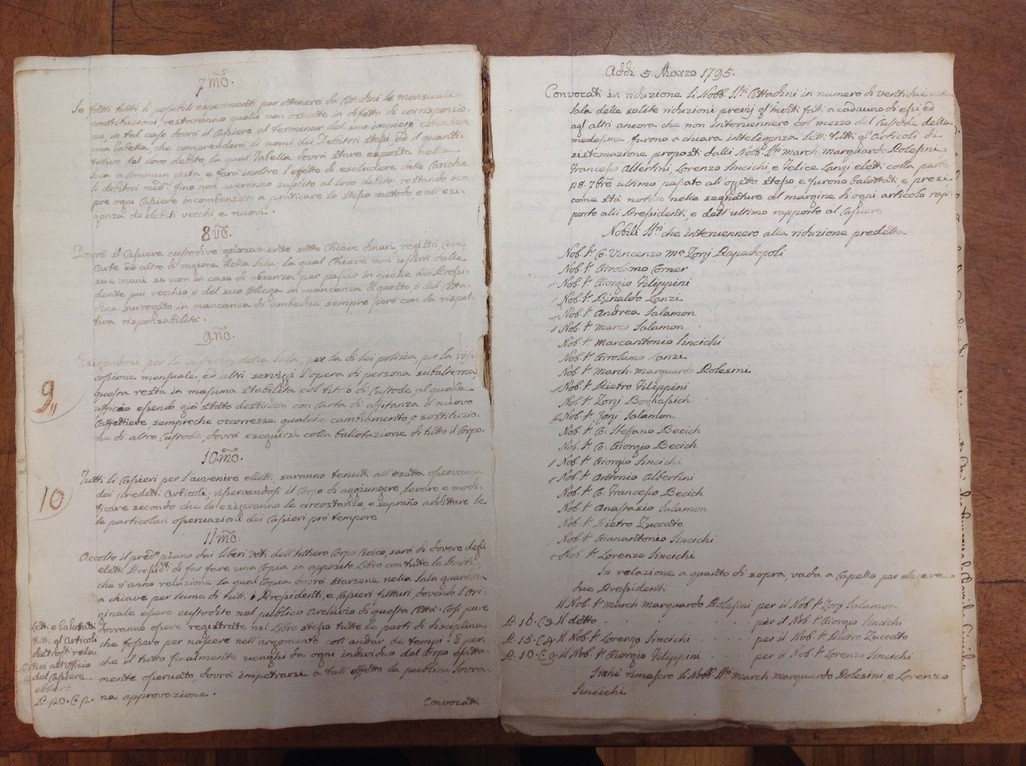 7mo.
Se fatti tutti li possibili esperimenti per ottenere da Cittadini le mensuali
contribuzioni restaranno qualche non ostante in difetto di corrisponsio
ne, in tal caso dovrà il Cassiere al terminar del suo impiego
una Tabella, che comprenderà li nomi dei Debitori stessi, ed il quanti
tativo del loro debito, la qual Tabella dovrà stare esposta nella
Sala a commun vista e farà inoltre l'effetto di escludere dalle Cariche
li debitori medmi. fino non averanno suplito al loro debito, restando sem
pre ogni Cassiere incombenzato a praticare lo stesso metodo e all'esi
genza de debiti vecchi e nuovi.
8vo.
Dovrà il Cassiere custodire gelosamente sotto Chiave dinari, registri, Cere
Carte ed altro di ragione della Sala la qual Chiave non uscirà dalle
sue mani se non in caso di absenza per passar in quelle del Presi
dente più vecchio o del suo Collega in mancanza di questo o del
surrogato in mancanza di ambedue sempre però con la rispet
tiva risponsabilità.
9no.
Esigendosi per la custodia della Sala, per la di lei polizia, per la ris
cossione mensuale, ed altri servigj l'opera di persona subalterna
questa resta in massima stabilita col titolo di Custode, al quale
officio essendo già stato destinato con Carta di affitanza il nuovo
Caffettiere sempreche occorresse qualche cambiamento, e sostituzio
ne di altro Custode, dovrà eseguirsi colla ballotazione di tutto il Corpo.
9
10mo.
Tutti li Cassieri per l'avvenire eletti, saranno tenuti all'esatta osservanza
dei predetti Articoli, riservandosi il Corpo di aggiungere, levare e modi
ficare secondo che lo esigeranno le circostanze, e sopranno additare le
le particolari osservazioni dei Cassieri pro tempore
10
11mo.
Accolto il predto. piano dai liberi voti dell'intiero Corpo Civico, sarà di dovere degli
eletti Presidti. di far fare una Copia in apposito Libro con tutte le Parti,
che v'anno relazione la qual Copia dovrà starsene nella Sala
a chiave per lume di tutti i Presidenti, e Cassieri futuri dovendo l'Ori
ginale essere custodito nel publico Archivio di questa Città. Così pure
dovranno essere registrate nel Libro stesso tutte le parti di disciplina
che fossero per nascere nell'argomento coll'andar de tempi: E per
che il tutto finalmente venghi da ogni individuo del Corpo esatta
mente osservato, dovrà impetrarsi a tall'effetto la publica Sovra
na approvazione.
Letti, e ballottati
tutti gl'Articoli
oltrascti. rela
tivi all'officio
del Cassiere
ebbero
P. 20. C. 2.
Convocati
Addi 5 Marzo 1795.
Convocati in riduzione li Nobb. Sri. Cittadini in numero di ventidue nella
sala delle solite riduzioni previj gl'inviti fatti a cadauno di essi ed
agl'altri ancora che non intervennero col mezzo del Custode della
medesima furono a chiara intelligenza letti tutti gl'Articoli di
sistemazione proposti dalli Nobb. Sri. March. Marquardo Polesini
Francesco Albertini, Lorenzo Sincichi e Felice Lanzi eletti colla parte
p8. 7bre ultimo passato all'oggetto stesso e furono balottati, e presi
come stà nottato nella segnatura al margine di ogni articolo rap
porto alli Presidenti, e dall'ultimo rapporto al Cassiere.
Nobili Sri. che intervennero alla riduzione predetta
Nob. Sr. C. Vincenzo Ma. Zorzi Papadopoli
Nob. Sr. Girolamo Corner
Nob. Sr. Giorgio Filippini
Nob. Sr. Rinaldo Lanzi
Nob. Sr. Andrea Salamon
Nob. Sr. Marco Salamon
Nob. Sr. Marcantonio Sincichi
Nob. Sr. Girolamo Lanzi
Nob. Sr. March. Marquardo Polesini
Nob. Sr. Pietro Filippini
Nob. Sr. Zorzi Borisssich
Nob. Sr. Zorzi Salamon
Nob. Sr. C. Stefano Becich
Nob. Sr. C. Giorgio Becich
Nob. Sr. Giorgio Sincichi
Nob. Sr. Antonio Albertini
Nob. Sr. C. Francesco Becich
Nob. Sr. Anastasio Salamon
Nob. Sr. Pietro Zuccato
Nob. Sr. Gianantonio Sincichi
Nob. Sr. Lorenzo Sincichi
In relazione a quanto di sopra, vada a Capello per elegere
due Presidenti.
Il Nob. Sr. March. Marquardo Polesini per il Nob. Sr. Zorzi Salamon
P. 10. C. 3. Il detto per il Nob. Sr. Giorgio Sincichi
P. 15. C. 4. Il Nob. Sr. Lorenzo Sincichi per il Nob. Sr. Pietro Zuccato
P. 10. C. 9. Il Nob. Sr. Giorgio Filippini per il Nob. Sr. Lorenzo Sincichi
Sichè rimasero li Nobb. Sri. March. Marquardo Polesini, e Lorenzo
Sincichi